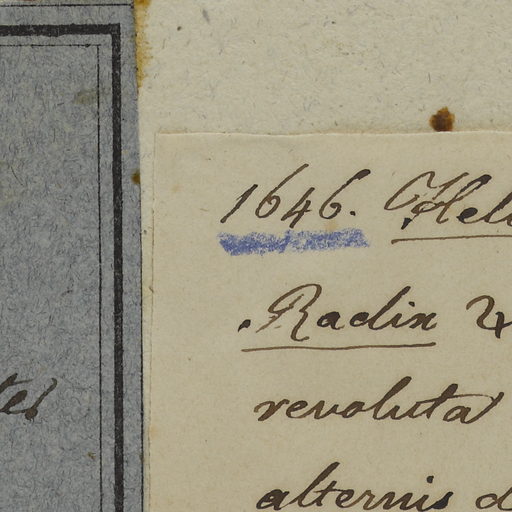 1646. Hel
Radix ♃
revoluta
alternis d